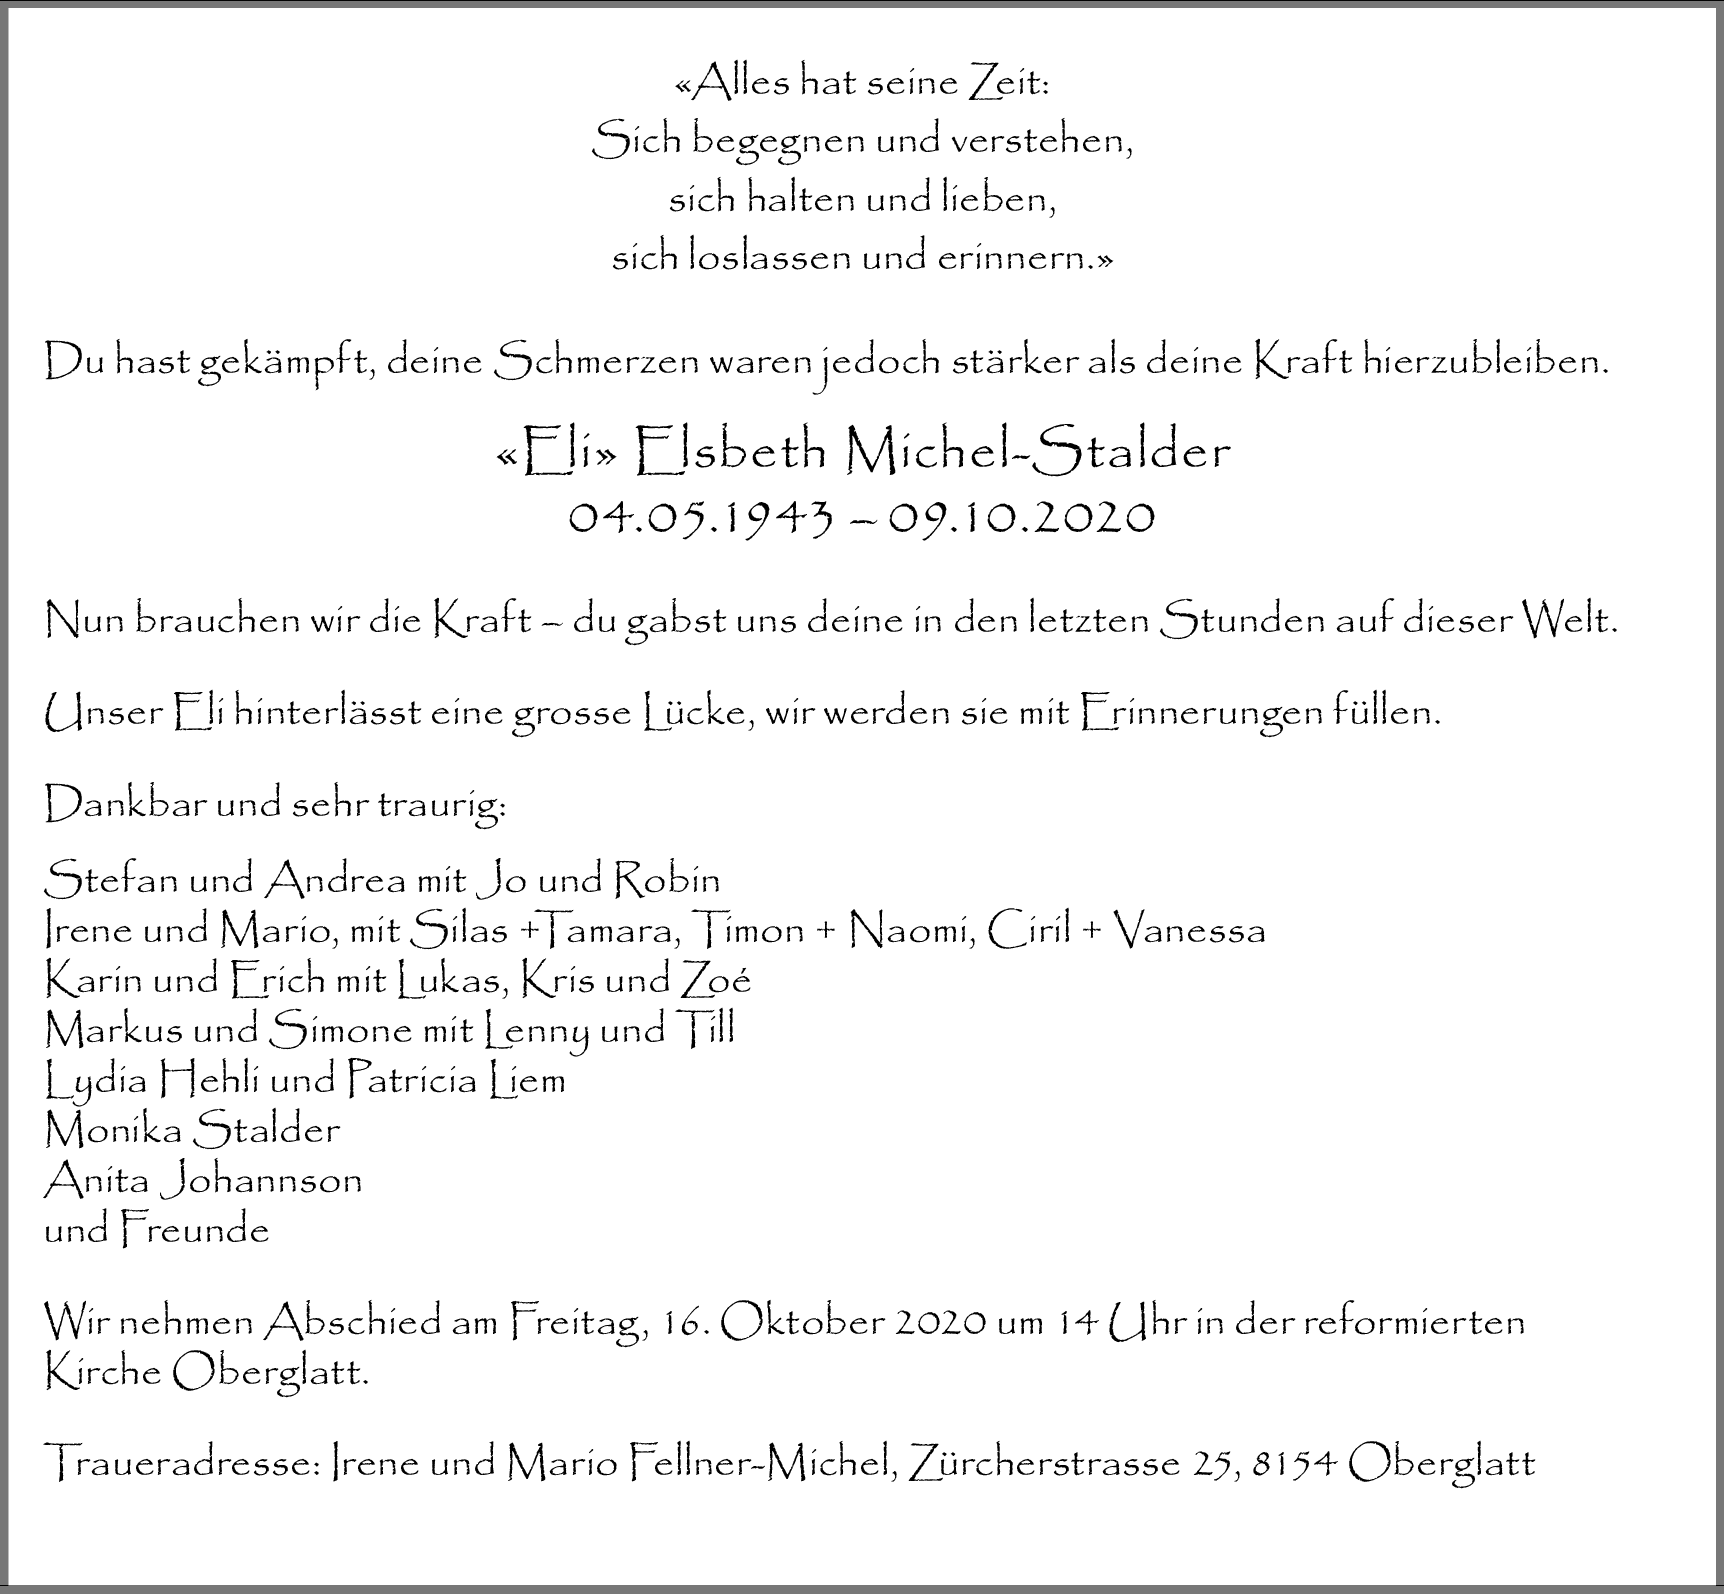 «Alles hat seine Zeit:
Sich begegnen und verstehen,
sich halten und lieben,
sich loslassen und erinnern.»
Du hast gekämpft, deine Schmerzen waren jedoch stärker als deine Kraft hierzubleiben.
«Eli» Elsbeth Michel-Stalder
04.05.1943 – 09.10.2020
Nun brauchen wir die Kraft – du gabst uns deine in den letzten Stunden auf dieser Welt.
Unser Eli hinterlässt eine grosse Lücke, wir werden sie mit Erinnerungen füllen.
Dankbar und sehr traurig:
Stefan und Andrea mit Jo und Robin
Irene und Mario, mit Silas +Tamara, Timon + Naomi, Ciril + Vanessa
Karin und Erich mit Lukas, Kris und Zoé
Markus und Simone mit Lenny und Till
Lydia Hehli und Patricia Liem
Monika Stalder
Anita Johannson
und Freunde
Wir nehmen Abschied am Freitag, 16. Oktober 2020 um 14 Uhr in der reformierten
Kirche Oberglatt.
Traueradresse: Irene und Mario Fellner-Michel, Zürcherstrasse 25, 8154 Oberglatt